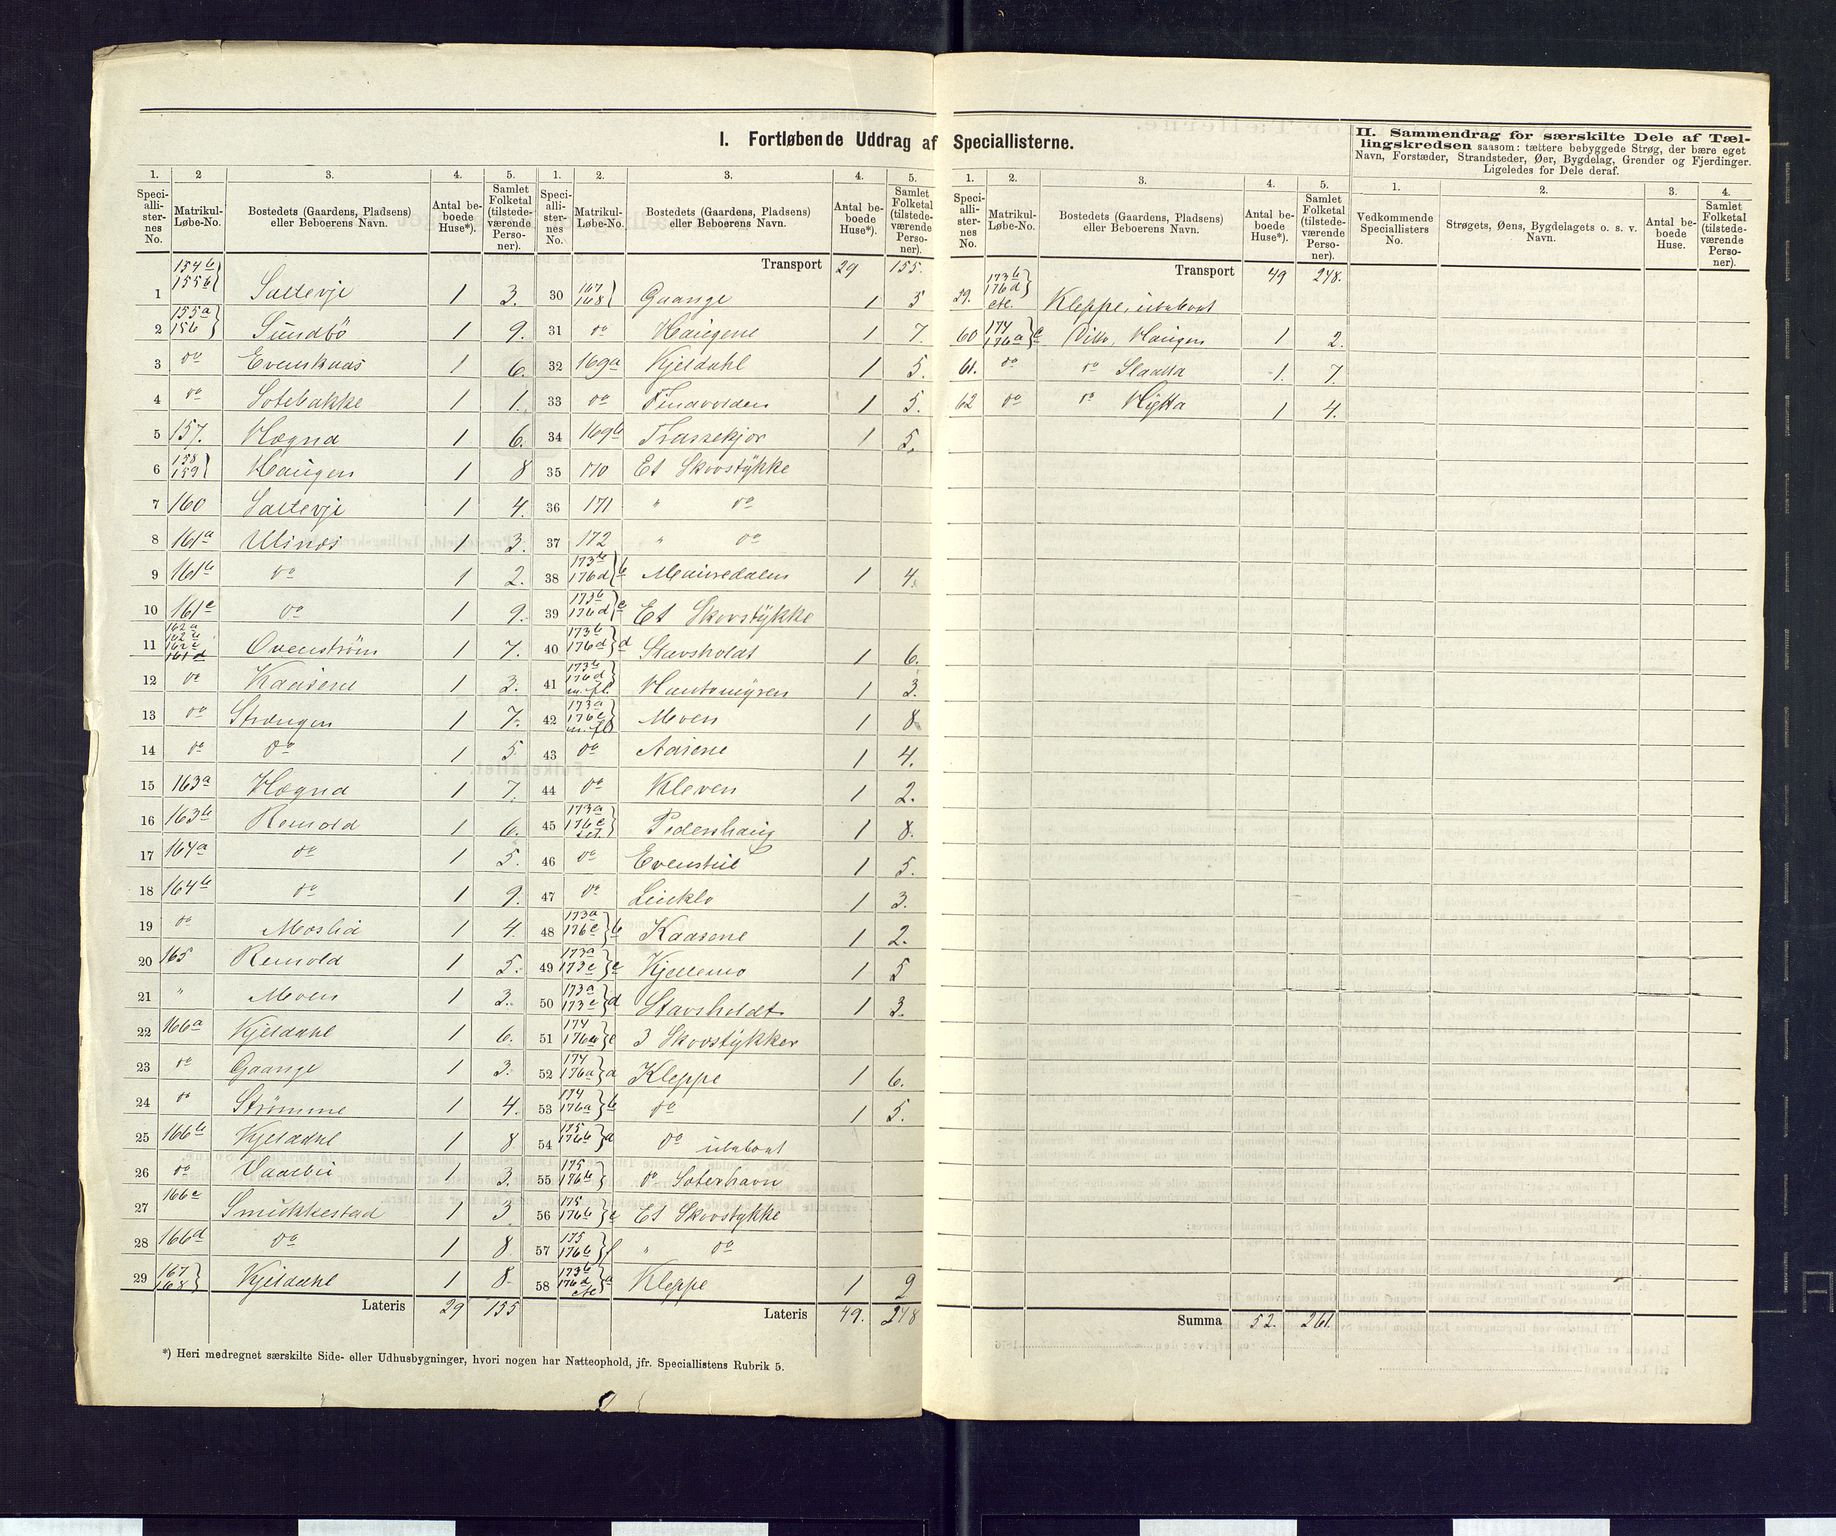 I. Fortløbende Uddrag af Speciallisterne.
II. Sammendrag for særskilte Dele af Tællingskredsen saasom: tættere bebyggede Strøg, der bære eget
Navn, Forstæder, Strandsteder, Øer, Bygdelag, Grender og Fjerdinger.
Ligeledes for Dele deraf.
1. 2 3. 4. 5.
Speciallisternes No. Matrikul-Løbe-No. Bostedets (Gaardens, Pladsens) eller Beboerens Navn. Antal beboede Huse*). Samlet Folketal (tilstedeværende Personer).
1 154b 155b } Saltevje 1 3.
2 155a 156 } Sundbö 1 9.
3 do Evenskaas 1 6.
4 do Sotebakke 1 1.
5 157. Högna 1 6.
6 158 159 } Haugen 1 8
7 160 Saltevje 1 4.
8 161a Ulnæs 1 3.
9 161b do 1 2.
10 161c do 1 9.
11 162a 162b 162c 161d Ovenström 1 7.
12 do Kaasene 1 3.
13 do Strengen 1 7.
14 do do 1 5.
15 163a Högna 1 7.
16 163b Renvold 1 6.
17 164a do 1 5.
18 164b do 1 9.
19 do Moslid 1 4.
20 165 Renvold 1 5.
21 " Moen 1 3.
22 166a Kjeldahl 1 6.
23 do Gaange 1 3.
24 do Strömme 1 4.
25 166b Kjeldahl 1 8
26 do 1 3.
27 166c Smukkestad 1 3
28 166d do 1 8
29 167 168 } Kjeldahl 1 8
Lateris 29 155
1. 2. 3. 4. 5.
Speciallisternes No. Matrikul-Løbe-No. Bostedets (Gaardens, Pladsens) eller Beboerens Navn. Antal beboede Huse*). Samlet Folketal (tilstedeværende Personer).
Transport 29 155.
30 167 168 } Gaange 1 5
31 do Haugene 1 7.
32 169a Kjeldahl 1 5.
33 do Tindvolden 1 5.
34 169b Trassekjær 1 5.
35 170 Et Skovstykke
36 171 " do
37 172 " do
38 173b 176d } b Mauredalen 1 4.
39 173b 176d } c Et Skovstykke
40 173b 176d } d Stavsholdt 1 6.
41 173b 176d m.fl. } Hantomyren 1 3.
42 173a 176c m.fl. } Moen 1 8
43 do Aasene 1 4.
44 do Kleven 1 2.
45 173a 176c Pedershaug 1 8.
46 do Evensteil 1 5.
47 do 1 3.
48 173a 176c } b Kaasene 1 2.
49 173a 173c } c Kjellemo 1 5
50 173a 173c } d Stavsholdt 1 3.
51 174 176a } c 3 Skovstykker
52 174 176a } a Kleppe 1 6.
53 174 176a } b do 1 5.
54 175 176b } a do ubeboet
55 175 176b } do Soterhavn
56 175 176b } c Et Skovstykke
57 175 176b } f " do
58 173b 176d etc } a Kleppe 1 2
Lateris 49. 248
*) Heri medregnet særskilte Side- eller Udhusbygninger, hvori nogen har Natteophold, jfr. Speciallistens Rubrik 5.
1. 2. 3. 4. 5.
Speciallisternes No. Matrikul-Løbe-No. Bostedets (Gaardens, Pladsens) eller Beboerens Navn. Antal beboede Huse*). Samlet Folketal (tilstedeværende Personer).
Transport 49 248.
59. 173b 176d etc. } Kleppe, ubeboet
60 174 176a } c Ditto, Haugen 1 2.
61. do do Slaatta 1. 7.
62 do do Hytta 1 4.
Summa 52. 261.
1. 2. 3. 4.
Vedkommende Speciallisters No. Strøgets, Øens, Bygdelagets o. s. v. Navn. Antal beboede Huse. Samlet Folketal (tilstedeværende Personer).